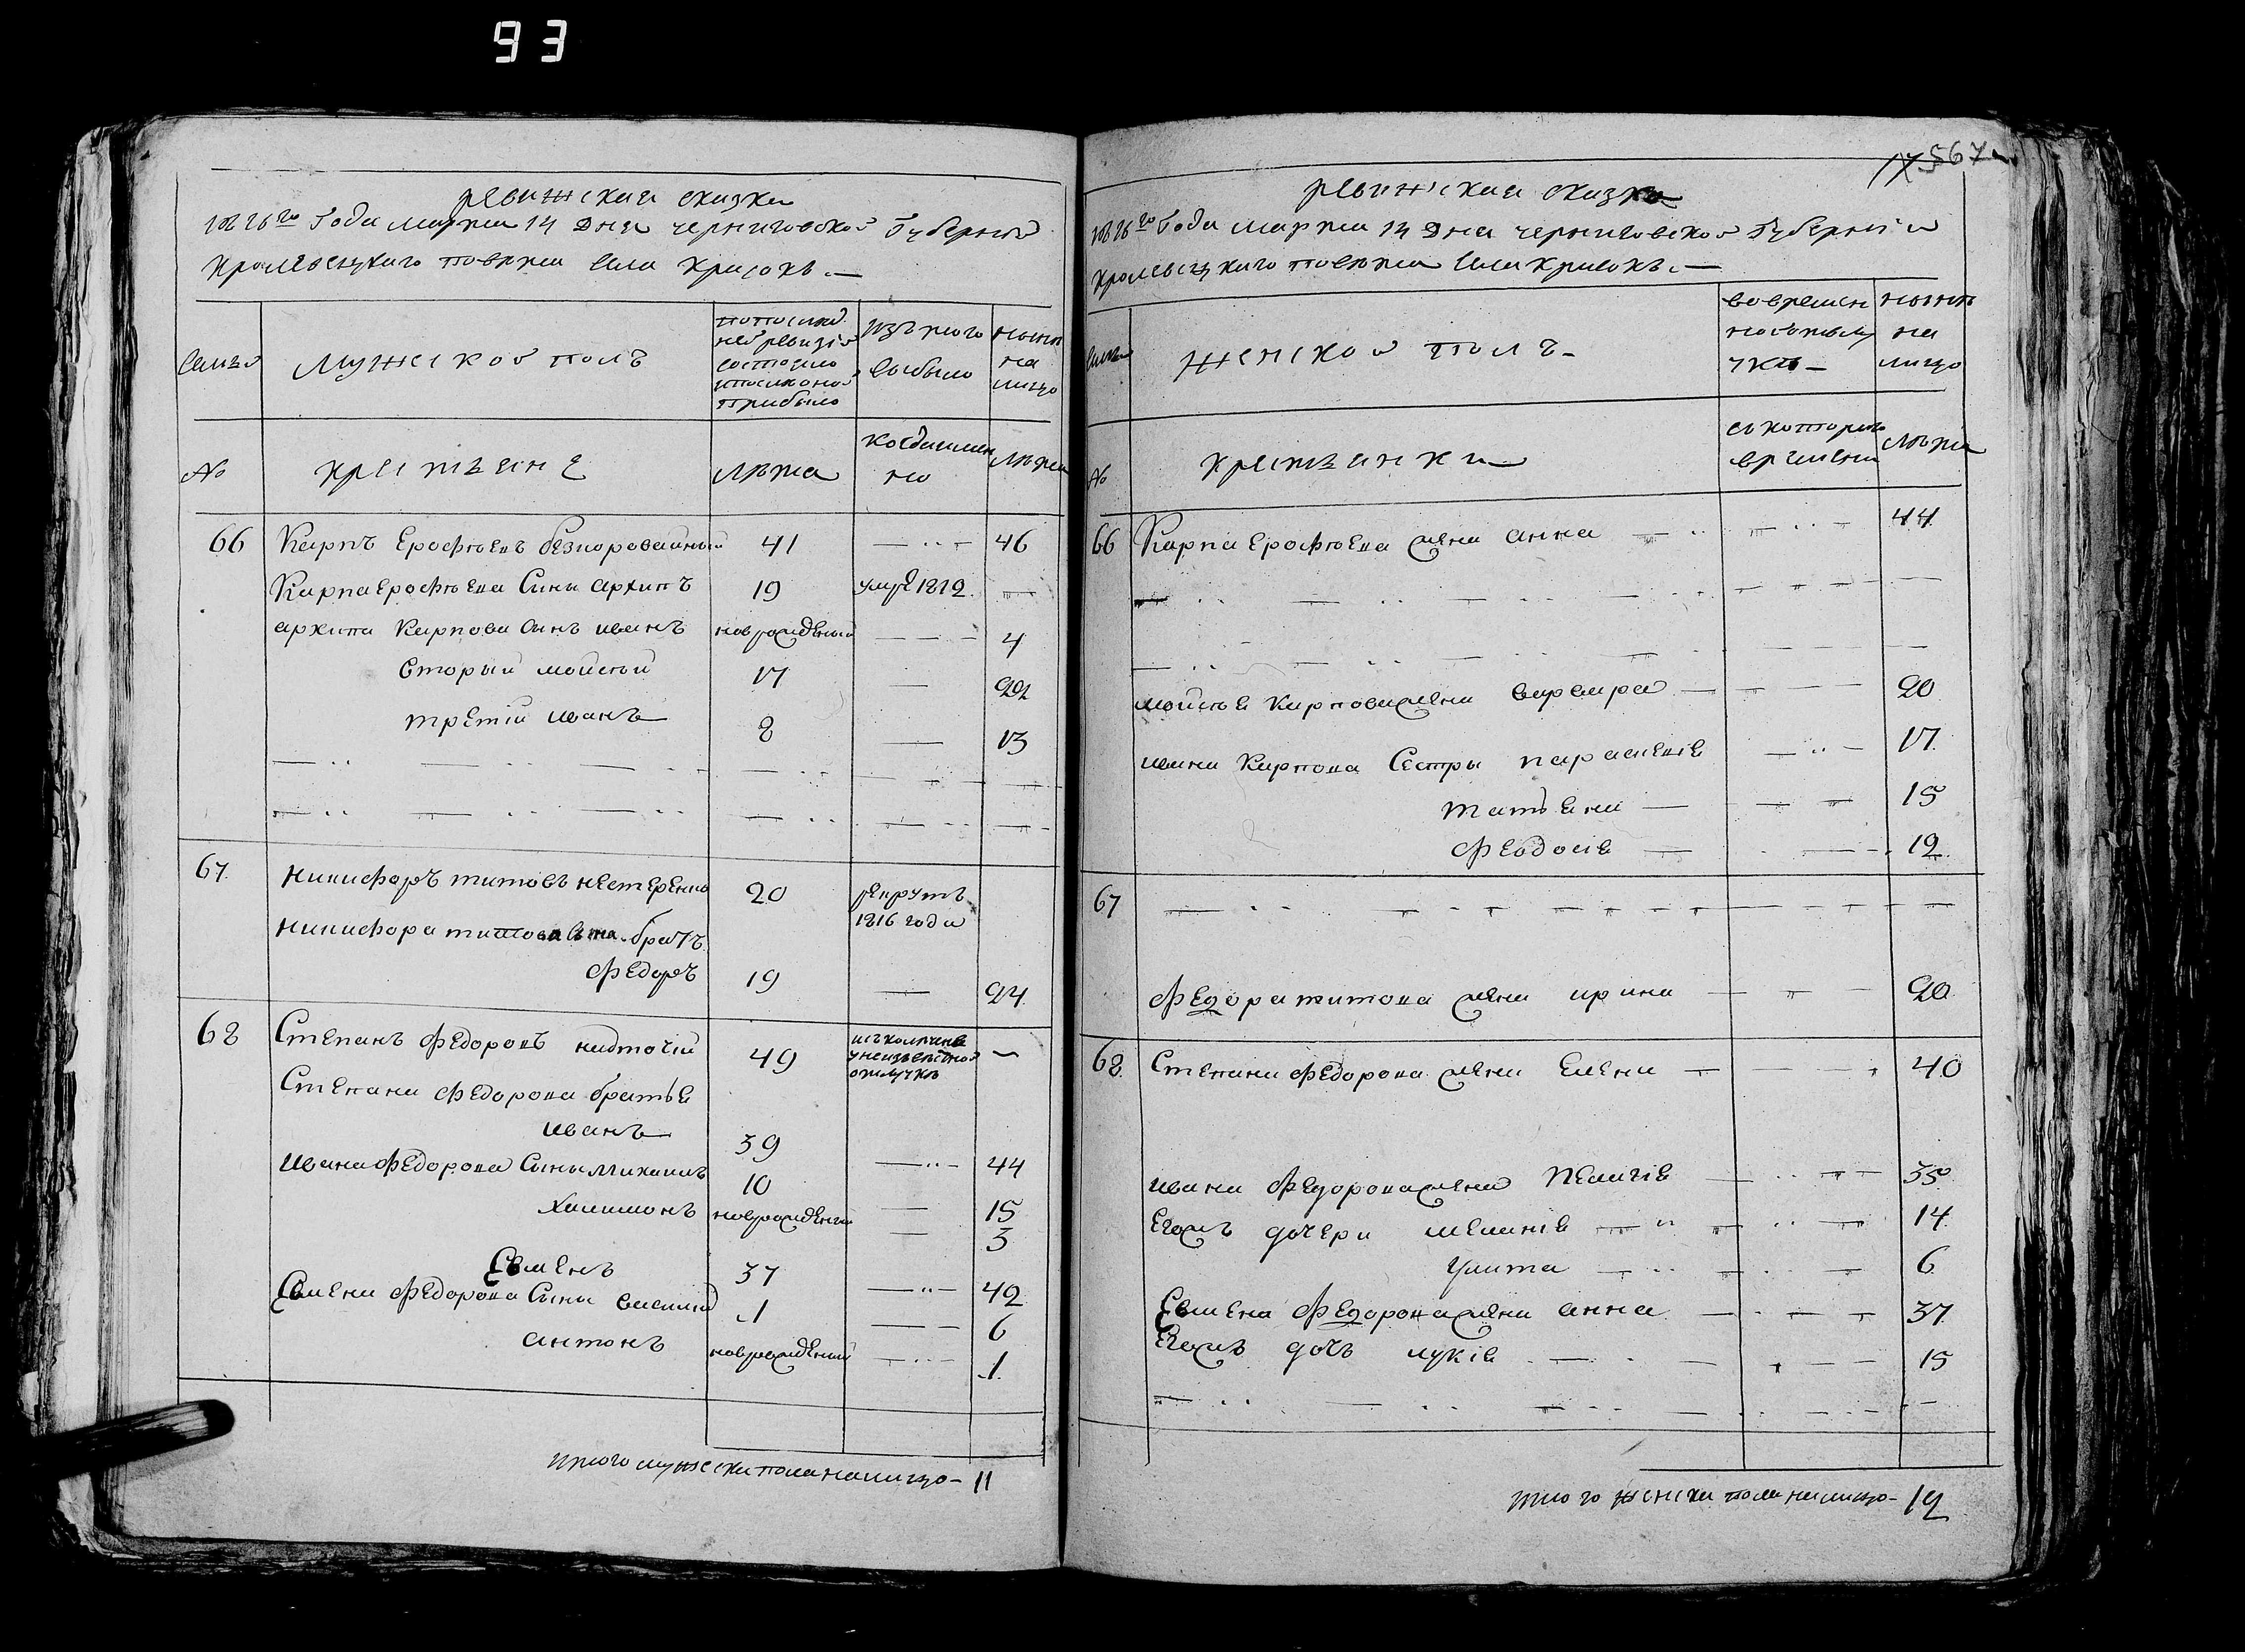 93
567
ревижская сказка
1816го Года марта 14 Дня черниговской Губернии
Кролевецкого повета Села Крисокъ. —
Семьи
Мужеской полъ
по последней ревизіи состояло и после оной прибыло
Изъ того выбыло
ныне на лицо
№
крестьяне
Лета
Когда именно
Лета
66 Карпъ Ерофеевъ безпоровайный 41 — 46
Карпа Ерофеева Сыны архипъ 19 умре 1812 —
архипа Карпова Сынъ иванъ новрожденый — 4
вторый мойсей 17 — 22
третій иванъ 8 — 13
67 Никифоръ титовъ нестеренко 20 рекрутъ 1816 года
Никифора титова братъ
Федоръ 19 — 24
68 Степанъ Федоровъ надточій 49 отлучке —
Степана Федорова братья
иванъ 39 — 44
ивана Федорова Сыны Михаилъ 10 — 15
новрожденый — 3
Семенъ 37 — 42
Семена Федорова Сыны василий 1 — 6
антонъ новрожденый — 1
Итого мужеска пола налицо - 11
ревижская сказка
1816го Года марта 14 Дня черниговской Губерніи
Кролевецкого повета Села Крисокъ. —
Семьи
Женской полъ -
во временной отлучке —
ныне на лицо
№
крестьянки
съ которого времени
Лета
66 Карпа Ерофеева жена анна — 44
мойсея Карпова жена варвара — 20
ивана Карпова Сестры параскевія — 17
татьяна — 15
Феодосія — 12
67 —
Федора титова жена ирина — 20
68 Степана Федорова жена Елена — 40
ивана Федорова жена Пелагія — 35
Егожъ дочери меланія — 14
улита — 6
Семена Федорова жена анна — 37
Егожъ дочь лукія — 15
Итого женска пола налицо - 12